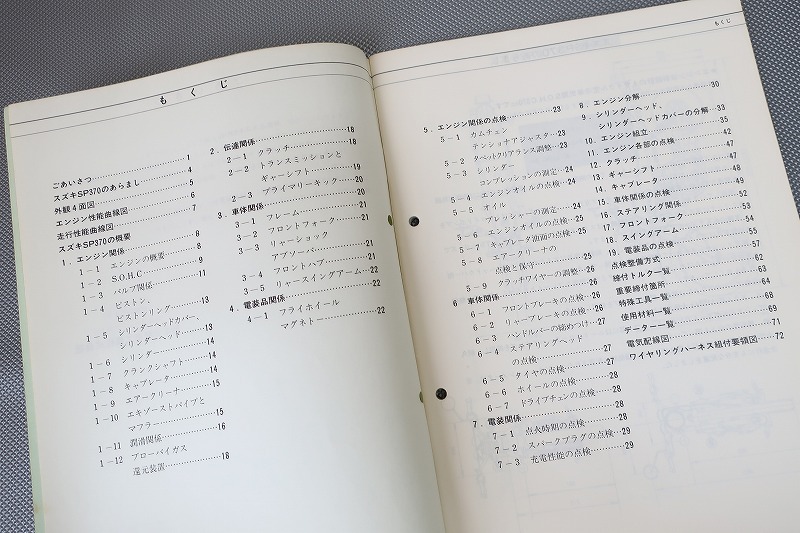 もくじ
ごあいさつ 1
スズキSP370のあらまし 4
外観4面図 5
エンジン性能曲線図 6
走行性能曲線図 7
スズキSP370の概要
1. エンジン関係 8
1-1 エンジンの概要 8
1-2 S.O.H.C 9
1-3 バルブ関係 11
1-4 ピストン、
ピストンリング 13
1-5 シリンダーヘッドカバー、
シリンダーヘッド 13
1-6 シリンダー 14
1-7 クランクシャフト 14
1-8 キャブレター 14
1-9 エアークリーナ 15
1-10 エキゾーストパイプと
マフラー 15
1-11 潤滑関係 16
1-12 ブローバイガス
還元装置 18
2. 伝達関係 18
2-1 クラッチ 18
2-2 トランスミッションと
ギャーシフト 19
2-3 プライマリーキック 20
3. 車体関係 20
3-1 フレーム 21
3-2 フロントフォーク 21
3-3 リャーショック
アブソーバ 21
3-4 フロントハブ 21
3-5 リャースイングアーム 22
4. 電装品関係
4-1 フライホイール
マグネトー 22
もくじ
5. エンジン関係の点検 23
5-1 カムチェン
テンショナアジャスタ 23
5-2 タペットクリアランス調整 23
5-3 シリンダー
コンプレッションの測定 24
5-4 エンジンオイルの点検 24
5-5 オイル
プレッシャーの測定 24
5-6 エンジンオイルの点検 25
5-7 キャブレタ油面の点検 25
5-8 エアークリーナの
点検と保守 25
5-9 クラッチワイヤーの調整 26
6 車体関係 26
6-1 フロントブレーキの点検 26
6-2 リャーブレーキの点検 26
6-3 ハンドルバーの締めつけ 27
6-4 ステアリングヘッド
の点検 27
6-5 タイヤの点検 27
6-6 ホイールの点検 28
6-7 ドライブチェンの点検 28
7. 電装関係 28
7-1 点火時期の点検 28
7-2 スパークプラグの点検 29
7-3 充電性能の点検 29
8. エンジン分解 30
9. シリンダーヘッド、
シリンダーヘッドカバーの分解 33
10. エンジン組立 35
11. エンジン各部の点検 42
12. クラッチ 47
13. ギャーシフト 47
14. キャブレタ 48
15. 車体関係の点検 49
16. ステアリング関係 52
17. フロントフォーク 53
18. スイングアーム 54
19. 電装品の点検 55
点検整備方式 57
締付トルク一覧 62
重要締付箇所 63
特殊工具一覧 64
使用材料一覧 68
データー一覧 69
電気配線図 71
ワイヤリングハーネス組付要領図 72